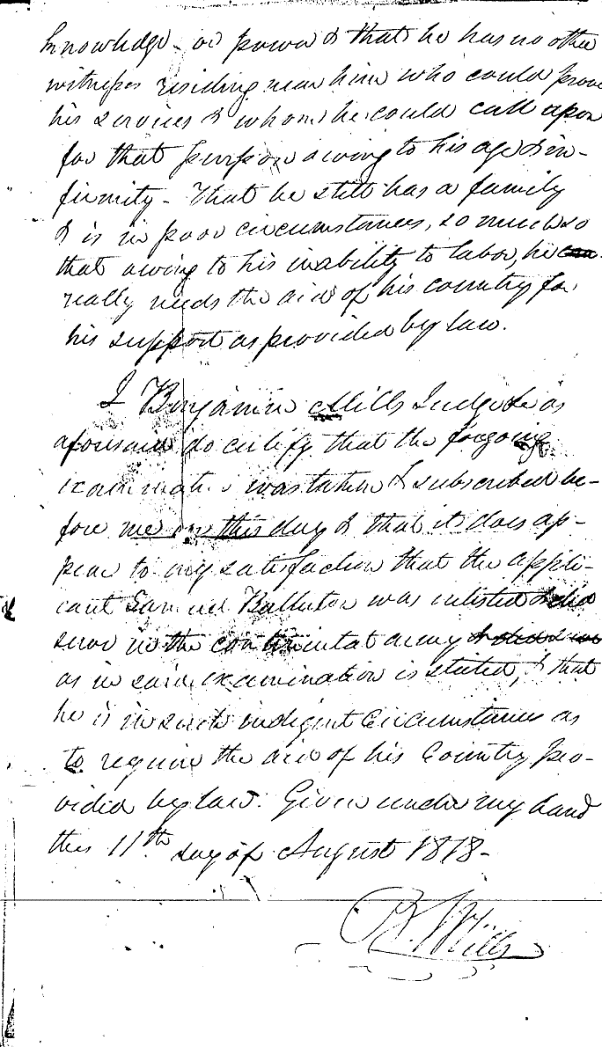 knowledge or power & that he has no other
witness residing near him who could prove
his services & whom he could call upon
for that purpose owing to his age & in-
firmity - That he still has a family
& is in poor circumstances, so much so
that owing to his inability to labor, he
really needs the aid of his country for
his support as provided by law.
I Benjamin Mills Judge &c as
aforesaid do certify that the forgoing
examination was taken & subscribed be-
fore me on this day & that it does ap-
pear to my satisfaction that the appli-
cant Samuel was enlisted & did
serve in the continental army
as in said examination is stated, & that
he is in such indigent Circumstances as
to require the aid of his Country pro-
vided by law. Given under my hand
this 11th day of August 1818-
B. Mills